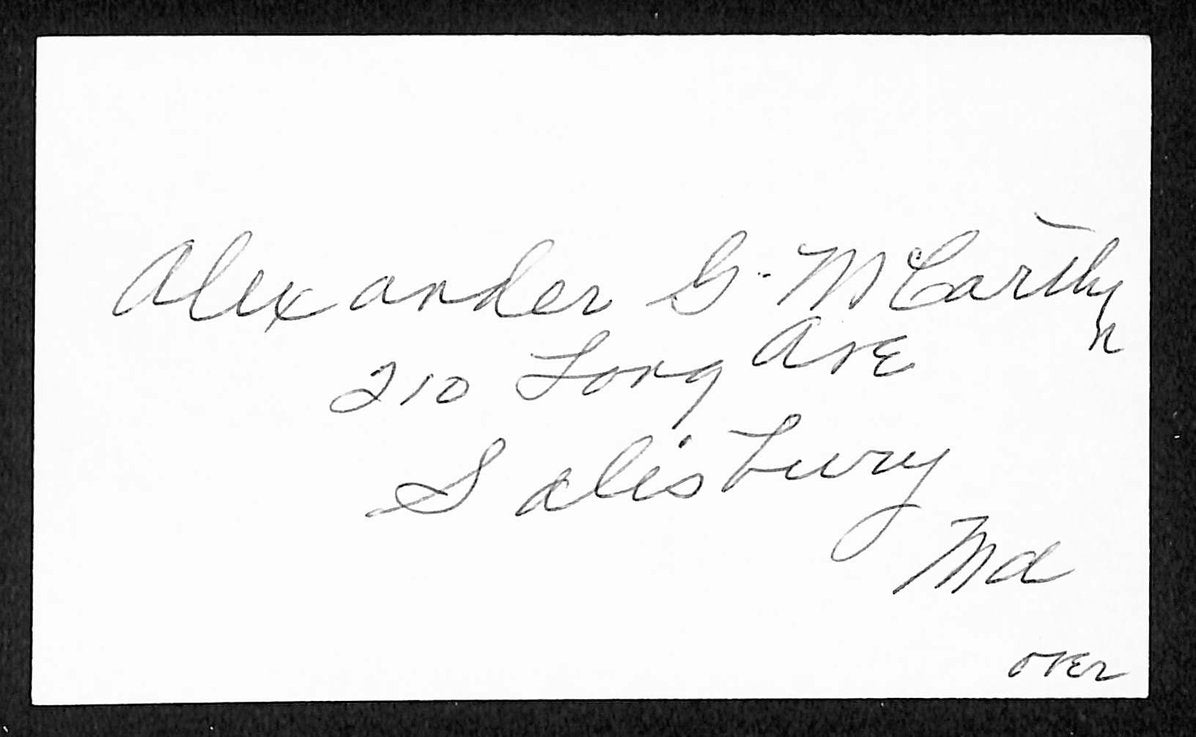 Alexander G. McCarthy
210 Long Ave
Salisbury
Md
over